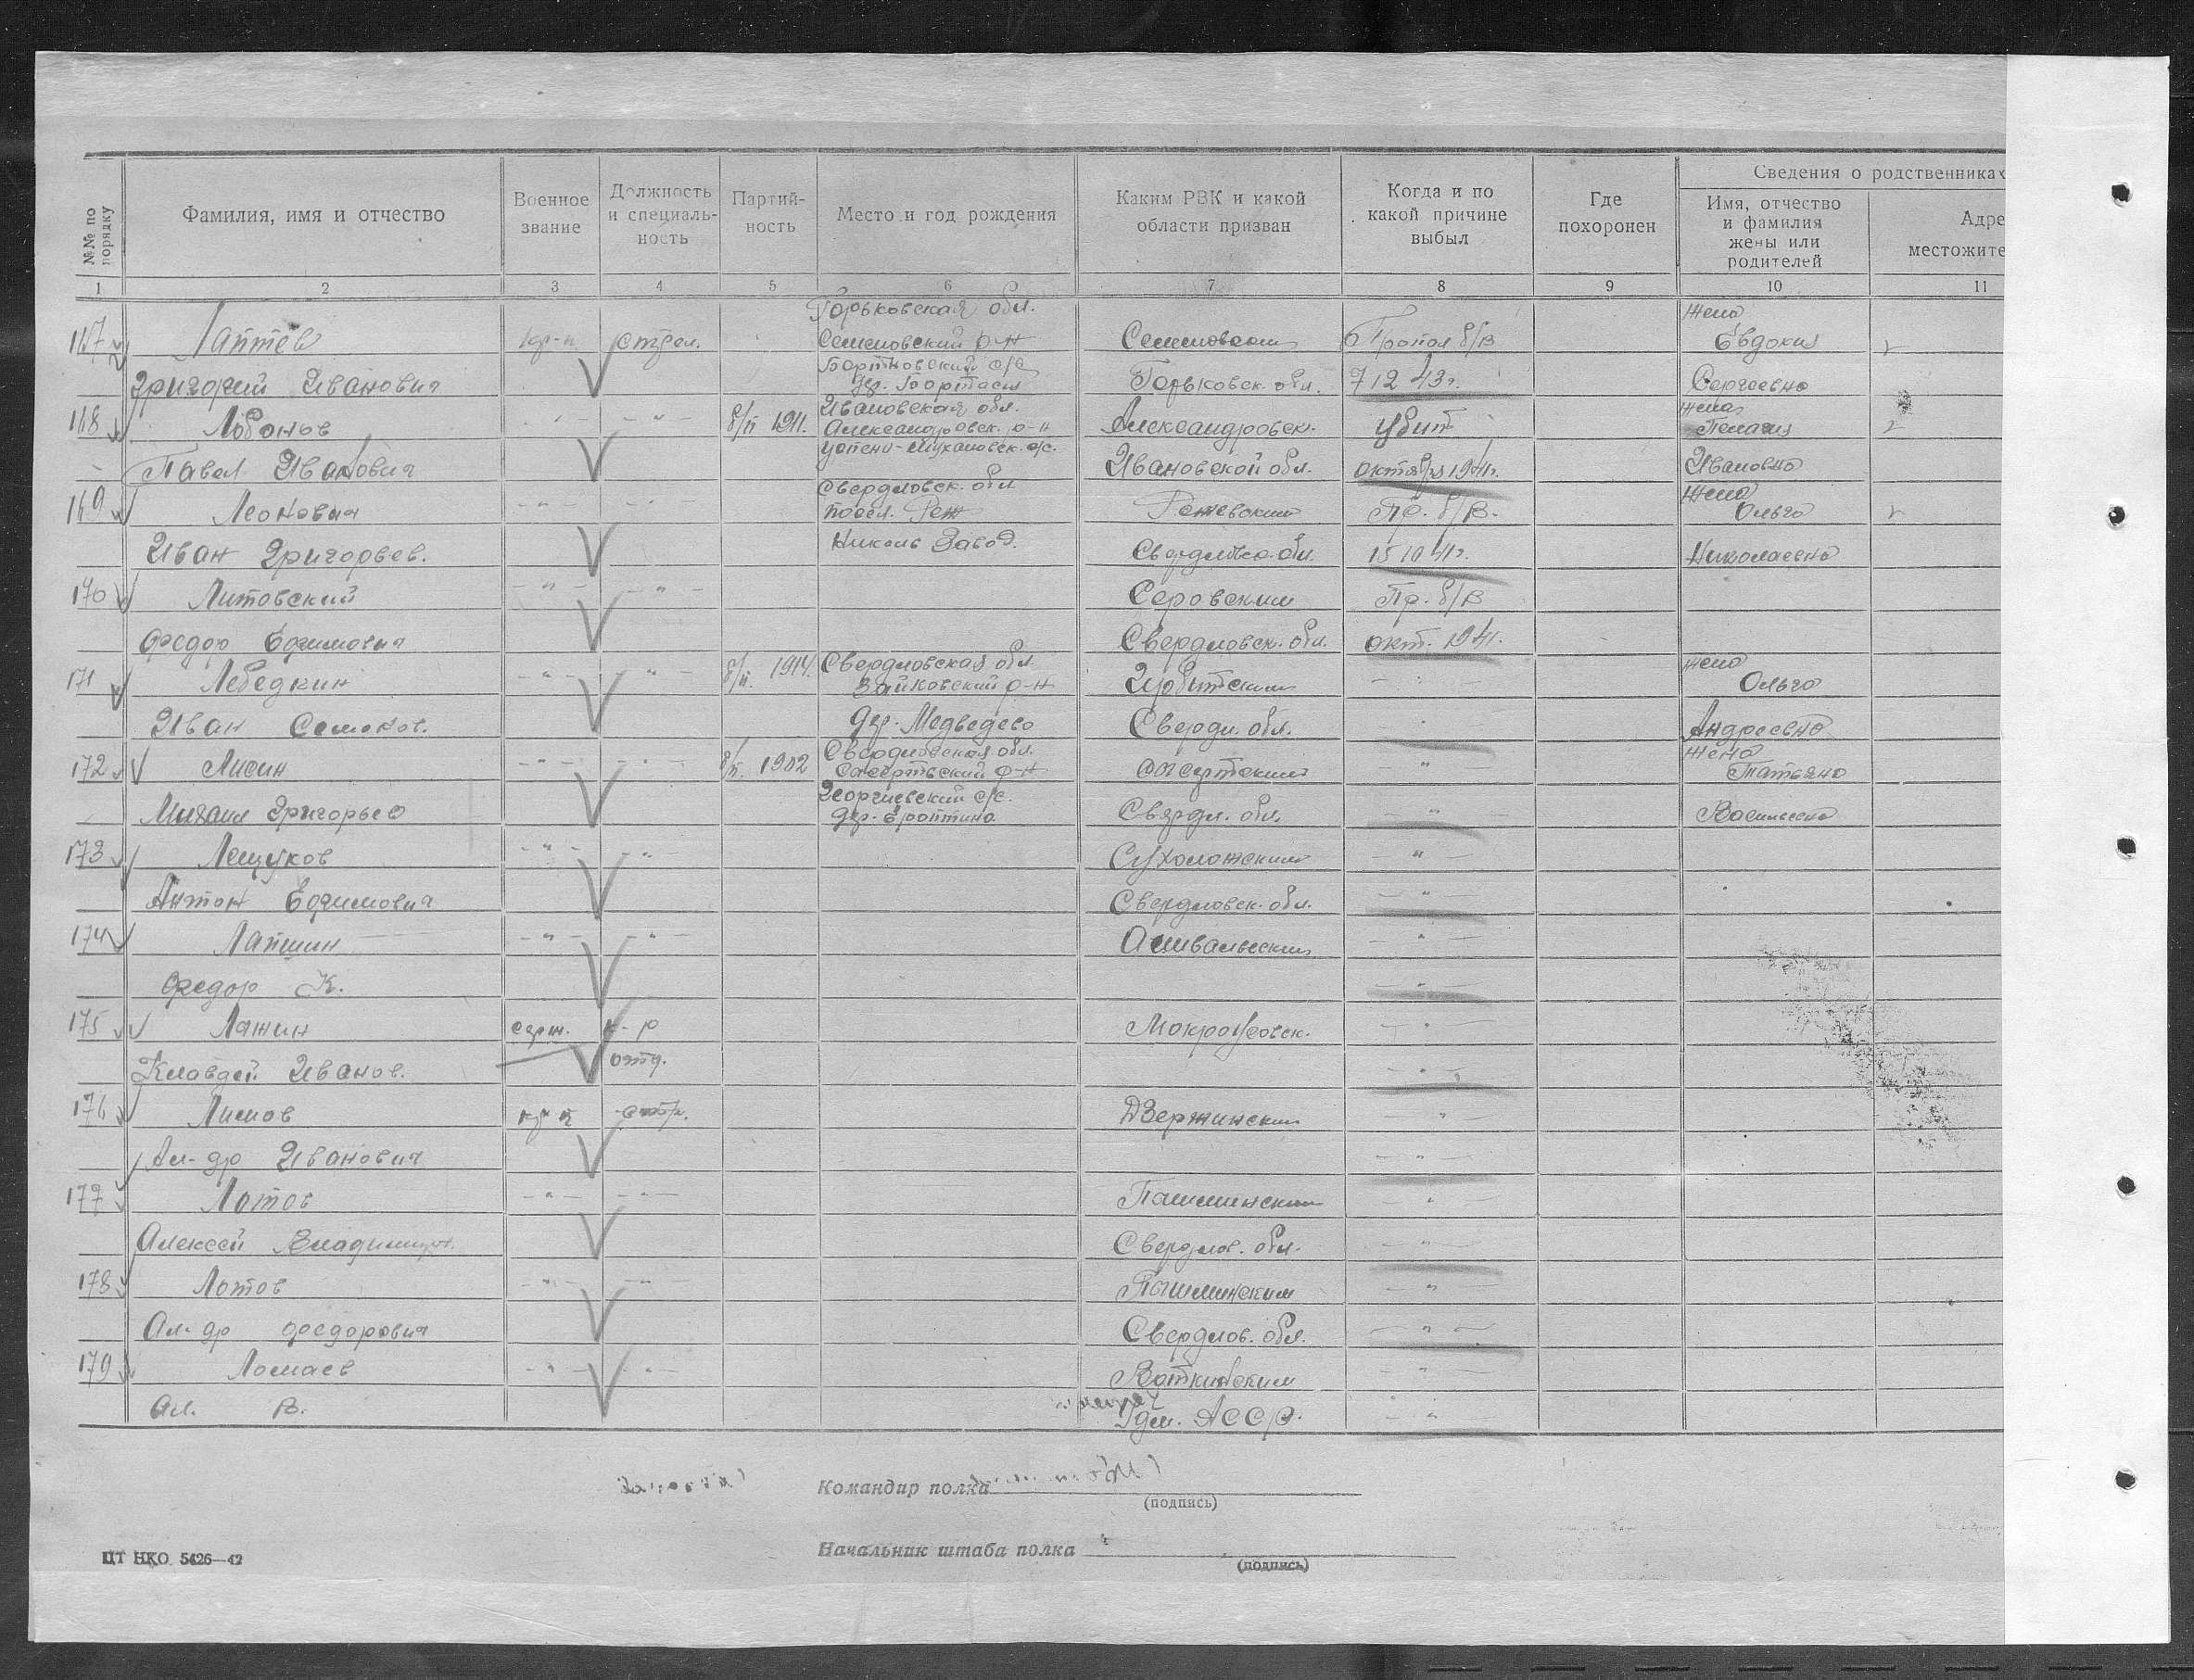 №№ по порядку
Фамилия, имя и отчество
Военное звание
Должность и специаль-ность
Партий-ность
Место и год рождения
Каким РВК и какой области призван
Когда и по какой причине выбыл
Где похоронен
Сведения о родственниках
Имя, отчество и фамилия жены или родителей
Адре
местожите
1 2 3 4 5 6 7 8 9 10 11
Горьковская обл. Жена
167 Лаптев кр-ц стрел. Семеновский р-н Семеновским Пропал б/в Евдокия
Григорий Иванович дер. Горьковск. обл. 7 12 43г. Сергеевна
Ивановская обл. жена
168 Лобонов - " - - " - б/п 1911. Александровск. р-н Александровск. убит Пелагия
Павел Иванович с/с. Ивановской обл. октября 1941г. Ивановна
Свердловск. обл Жена
169 Леонович - " - - " - посел. Реж Режевским Пр. б/в. Ольга
Иван Григорьев. Никель Завод. Свердловск. обл. 15 10 41г. Николаевна
170 Литовский - " - - " - Серовским Пр. б/в
Федор Ефимович Свердловск. обл. окт. 1941.
Свердловская обл. жена
171 Лебедкин - " - - " - б/п. 1914. Зайковский р-н Ирбитским - " - Ольга
Иван Семенов. дер. Медведево Свердл. обл. Андреевна
Свердловская обл. жена
172 Лисин - " - - " - б/п. 1902 Сысертьский р-н Сысертским - " - Татьяна
Георгиевский с/с.
Михаил Григорьев дер. Свердл. обл. - " - Васильевна
173 Лещуков - " - - " - Сухоложским - " -
Антон Ефимович Свердловск. обл. - " -
174 Лапшин - " - - " - - " -
Федор К. - " -
175 Лажин серж. к-р Мокроусовск. - " -
Клавдей Иванов. отд. - " -
176 Лимов кр-ц стр. Дзержинским - " -
Ал-др Иванович - " -
177 Лотов - " - - " - Пышминским - " -
Алексей Владимир. Свердлов. обл. - " -
178 Лотов - " - - " - Пышминским - " -
Ал-др Федорович Свердлов. обл. - " -
179 Ломаев - " - - " - Воткинским - " -
Ал. В. Удм. АССР. - " -
Командир полка
(подпись)
Начальник штаба полка
(подпись)
ЦТ НКО 5426—42